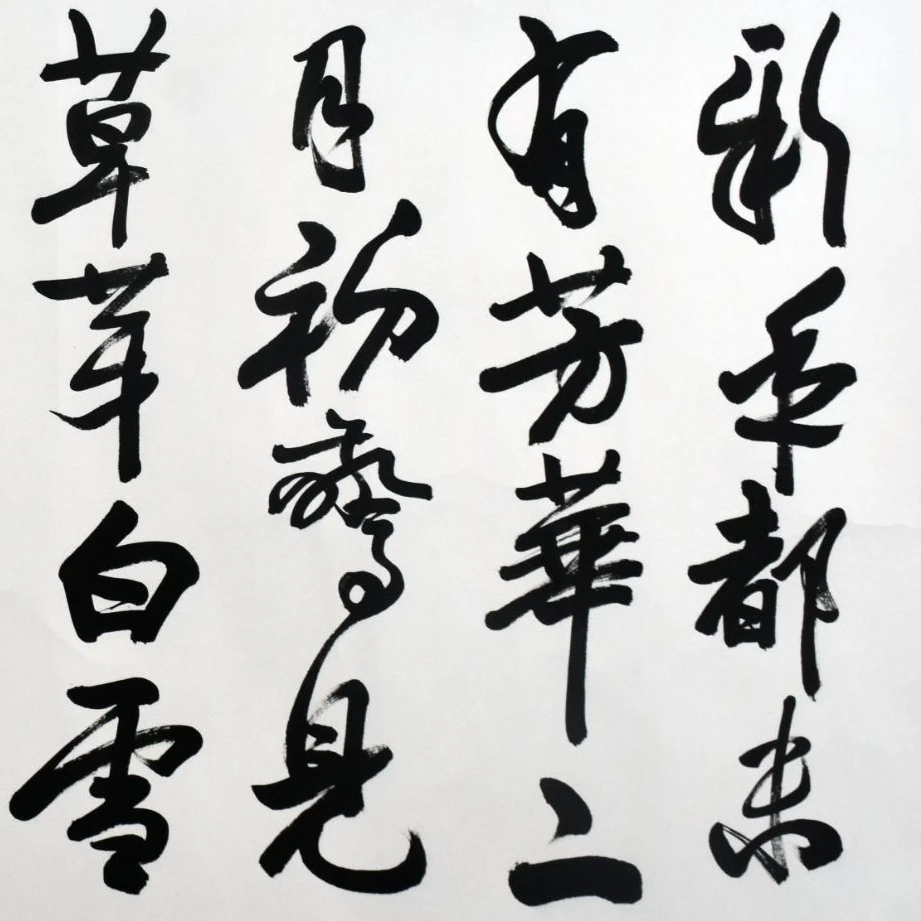 新年都未
有芳華二
月初驚見
草芽白雪